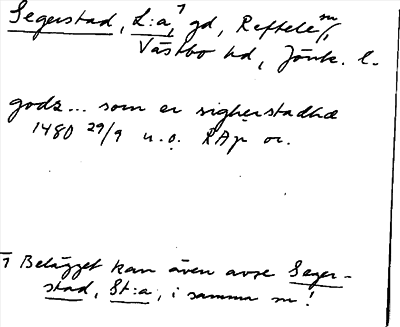 Segerstad, L:a, ⁊ gd, Reftele sn,
Västbo hd, Jönk. l.
godz... som er sigherstadhæ
1480 29/9 u.o. RAp or.
⁊ Belägget kan även avse Seger-
stad, St:a, i samma sn!